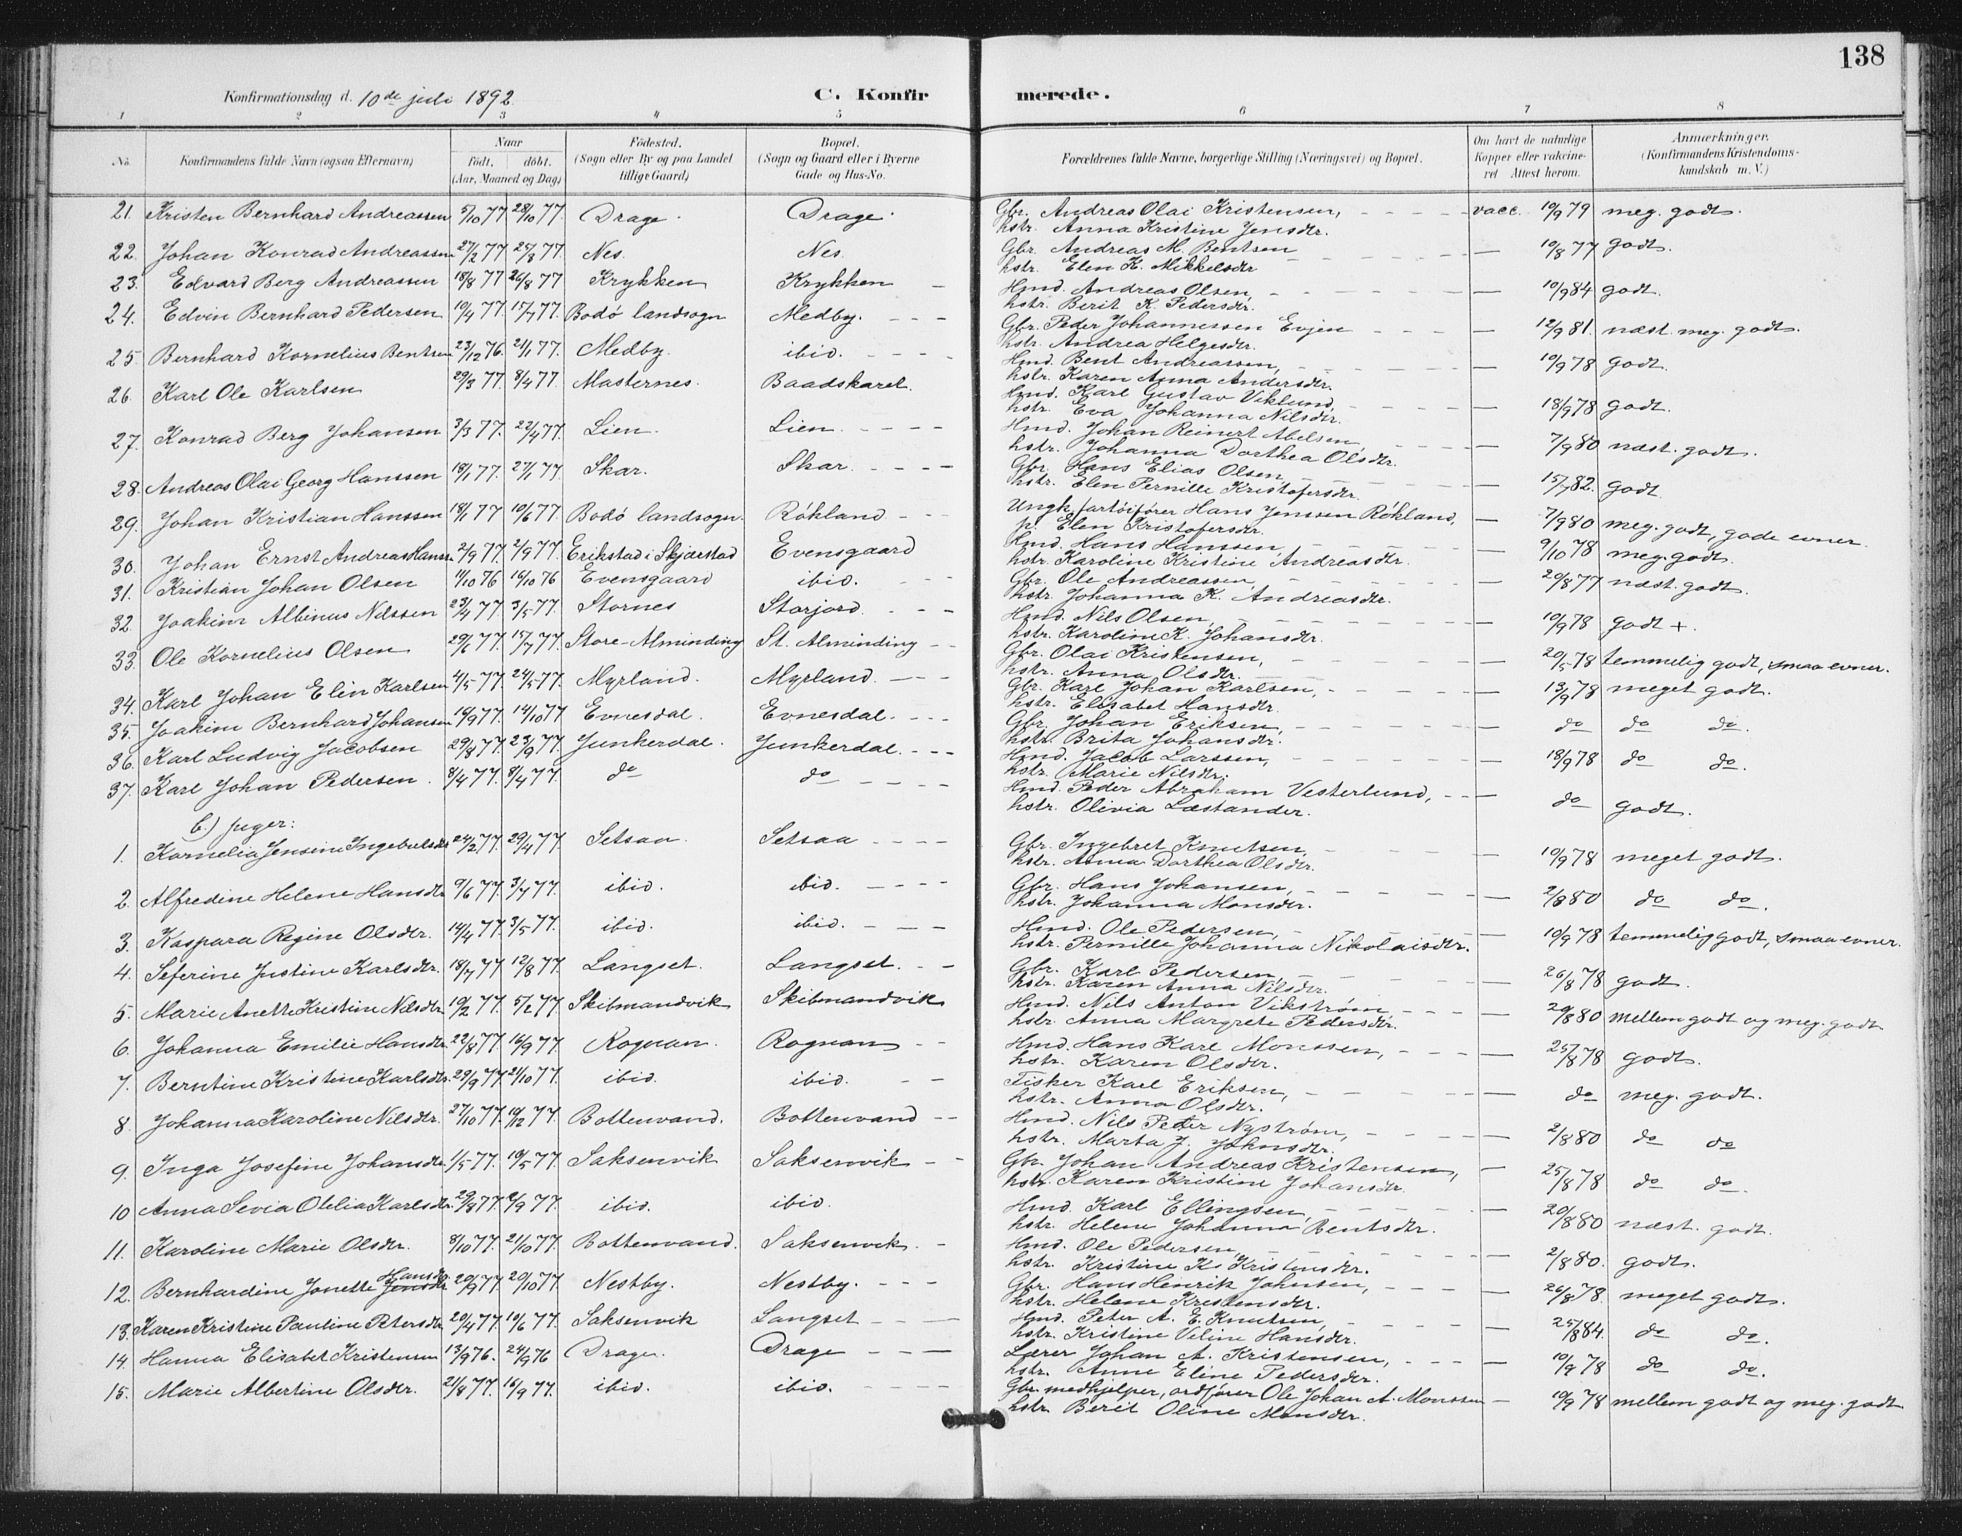 138
Konfirmationsdag d. 10de juli 1892.
C. Konfirmerede.
1 2 3 4 5 6 7 8
No.
Konfirmandens fulde Navn (ogsaa Efternavn)
Naar
født, døbt,
(Aar, Maaned og Dag)
Fødested.
(Sogn eller By og paa Landet
tillige Gaard)
Bopæl.
(Sogn og Gaard eller i Byerne
Gade og Hus-No.
Forældrenes fulde Navne, borgerlige Stilling (Næringsvei) og Bopæl.
Om havt de naturlige
Kopper eller vakcine-
ret Attest herom.
Anmærkninger.
(Konfirmandens Kristendoms-
kundskab m. V.)
21. Kristen Bernhard Andreassen 5/10 77 28/10 77. Drage. Drage. Gbr. Andreas Olai Kristensen, vacc. 10/9 79 meg. godt.
hstr. Anna Kristine Jensdtr.
22. Johan Konrad Andreassen 27/2 77 25/3 77. Nes. Nes. Gbr. Andreas M. Bentsen — 10/8 77 godt.
hstr. Elen K. Mikkelsdtr
23. Edvard Berg Andreassen 18/8 77 26/8 77 Krykken Krykken Hmd. Andreas Olsen, — 10/9 84 godt.
hstr. Berit K. Pedersdtr.
24. Edvin Bernhard Pedersen 10/4 77. 15/7 77. Bodø landsogn Medby. Gbr. Peder Johannessen Evjen — 12/9 81. næst meg. godt.
hstr. Andrea Helgesdtr.
25. Bernhard Kornelius Bentsen 23/12 76. 21/1 77. Medby. ibid. Hmd. Bent Andreassen, — 10/9 78 godt.
hstr. Karen Anna Andersdtr.
26. Karl Ole Karlsen 29/3 77. 8/4 77. Masternes. Baadskaret. Hmd. Karl Gustav Viklund, — 18/9 78 godt.
hstr. Eva Johanna Nilsdtr.
27. Konrad Berg Johansen 3/3 77. 22/4 77. Lien. Lien. Hmd. Johan Reinert Abelsen, — 7/9 80 næst. godt.
hstr. Johanna Dorthea Olsdtr.
28. Andreas Olai Georg Hanssen 18/1 77. 27/1 77 Skar. Skar. Gbr. Hans Elias Olsen, — 15/7 82. godt
hstr. Elen Pernille Kristofersdtr.
29. Johan Kristian Hanssen 18/1 77 10/6 77. Bodø landsogn. Røkland Ungk. fartøifører Hans Jenssen Røkland, — 7/9 80 meg. godt, gode evner
p. Elen Kristofersdtr.
30. Johan Ernst Andreas Hanssen 2/9 77. 2/9 77. Erikstad i Skjærstad Evensgaard Hmd. Hans Hanssen, — 9/10 78 meg. godt.
hstr. Karoline Kristine Andreasdtr.
31. Kristian Johan Olsen 11/10 76 16/10 76 Evensgaard ibid. Gbr. Ole Andreassen, — 20/8 77 næst. godt.
hstr. Johanna K. Andreasdtr.
32. Joakim Albinus Nilssen 23/4 77 3/5 77. Stornes Storjord. Hmd. Nils Olsen, — 10/9 78 godt +.
hstr. Karoline K. Johansdtr.
33. Ole Kornelius Olsen 29/6 77. 15/7 77. Store-Alminding St. Alminding Gbr. Olai Kristensen, — 20/5 78 temmelig godt, smaa evner.
hstr. Anna Olsdtr.
34. Karl Johan Elin Karlsen 4/5 77. 24/5 77. Myrland. Myrland. Gbr. Karl Johan Karlsen, — 13/9 78 meget godt.
hstr. Elisabet Hansdtr.
35. Joakim Bernhard Johansen 16/9 77. 14/10 77 Evnesdal. Evnesdal. Gbr. Johan Eriksen, — do do do.
hstr. Brita Johansdtr.
36. Karl Ludvig Jacobsen 29/8 77. 23/9 77. Junkerdal. Junkerdal. Hmd. Jacob Larssen, — 18/9 78 do do.
hstr. Marie Nilsdtr.
37. Karl Johan Pedersen. 8/4 77. 8/4 77. do do Hmd. Peder Abraham Vesterlund, — do godt.
hstr. Olivia Læstander.
b.) piger:
1. Kornelia Jensine Ingebretsdtr 24/2 77. 29/4 77. Setsaa. Setsaa Gbr. Ingebret Knutsen, — 10/9 78 meget godt.
hstr. Anna Dorthea Olsdtr.
2. Alfredine Helene Hansdtr 9/6 77. 3/7 77. ibid. ibid. Gbr. Hans Johansen, — 2/8 80 do do.
hstr. Johanna Monsdtr.
3. Kaspara Regine Olsdtr. 14/4 77. 3/5 77. ibid. ibid. Hmd. Ole Pedersen, — 10/9 78 temmelig godt, smaa evner.
hstr. Pernille Johanna Nikolaisdtr.
4. Seferine Justine Karlsdtr. 18/7 77 12/8 77. Langset. Langset. Gbr. Karl Pedersen, — 26/8 78 godt.
hstr. Karen Anna Nilsdtr.
5. Marie Anette Kristine Nilsdtr 10/2 77. 5/2 77. Skibmandvik Skibmandvik Hmd. Nils Anton Vikstrøm, — 20/8 80 mellem godt og meg. godt
hstr. Anna Margrete Pedersdtr.
6. Johanna Emilie Hansdtr. 22/8 77. 16/9 77. Rognan. Rognan Hmd. Hans Karl Monssen, — 25/8 78 godt.
hstr. Karen Olsdtr.
7. Berntine Kristine Karlsdtr. 29/9 77. 21/10 77. ibid. ibid. Fisker Karl Eriksen, — do meg. godt.
hstr. Anna Olsdtr.
8. Johanna Karoline Nilsdtr. 27/10 77. 10/12 77. Bottenvand. Bottenvand Hmd. Nils Peter Nystrøm, — 2/8 80 do do
hstr. Marta J. Johnsdtr.
9. Inga Josefine Johansdtr 1/5 77. 10/5 77. Saksenvik Saksenvik Gbr. Johan Andreas Kristensen, — 25/8 78 do do.
hstr. Karen Kristine Johansdtr.
10 Anna Sevia Olelia Karlsdtr. 29/8 77. 2/9 77. ibid. ibid. Hmd. Karl Ellingsen, — 20/8 80 næst. godt.
hstr. Helene Johanna Bentsdtr.
11. Karoline Marie Olsdtr. 8/10 77. 21/10 77. Bottenvand. Saksenvik. Hmd. Ole Pedersen, — 2/8 80. godt.
hstr. Kristine K. Kristensdtr.
12. Bernhardine Jonette Jensdtr Hansdtr 20/9 77. 20/10 77. Nestby. Nestby. Gbr. Hans Henrik Johnsen, — 26/8 78. meget godt.
hstr. Helene Kristensdtr.
13. Karen Kristine Pauline Petersdtr 20/4 77. 10/6 77. Saksenvik Langset Hmd. Peter A. E. Knutsen, — 25/8 84. do do.
hstr. Kristine Veline Hansdtr.
14. Hanna Elisabet Kristensen 13/9 76. 24/9 76 Drage. Drage Lærer Johan A. Kristensen, — 10/9 78 do do.
hstr. Anne Eline Pedersdtr.
15. Marie Albertine Olsdtr. 21/8 77. 16/9 77. ibid. ibid. Gbr. medhjelper, ordfører Ole Johan A. Monssen — 10/9 78 mellem godt og meg. godt
hstr. Berit Oline Monsdtr.